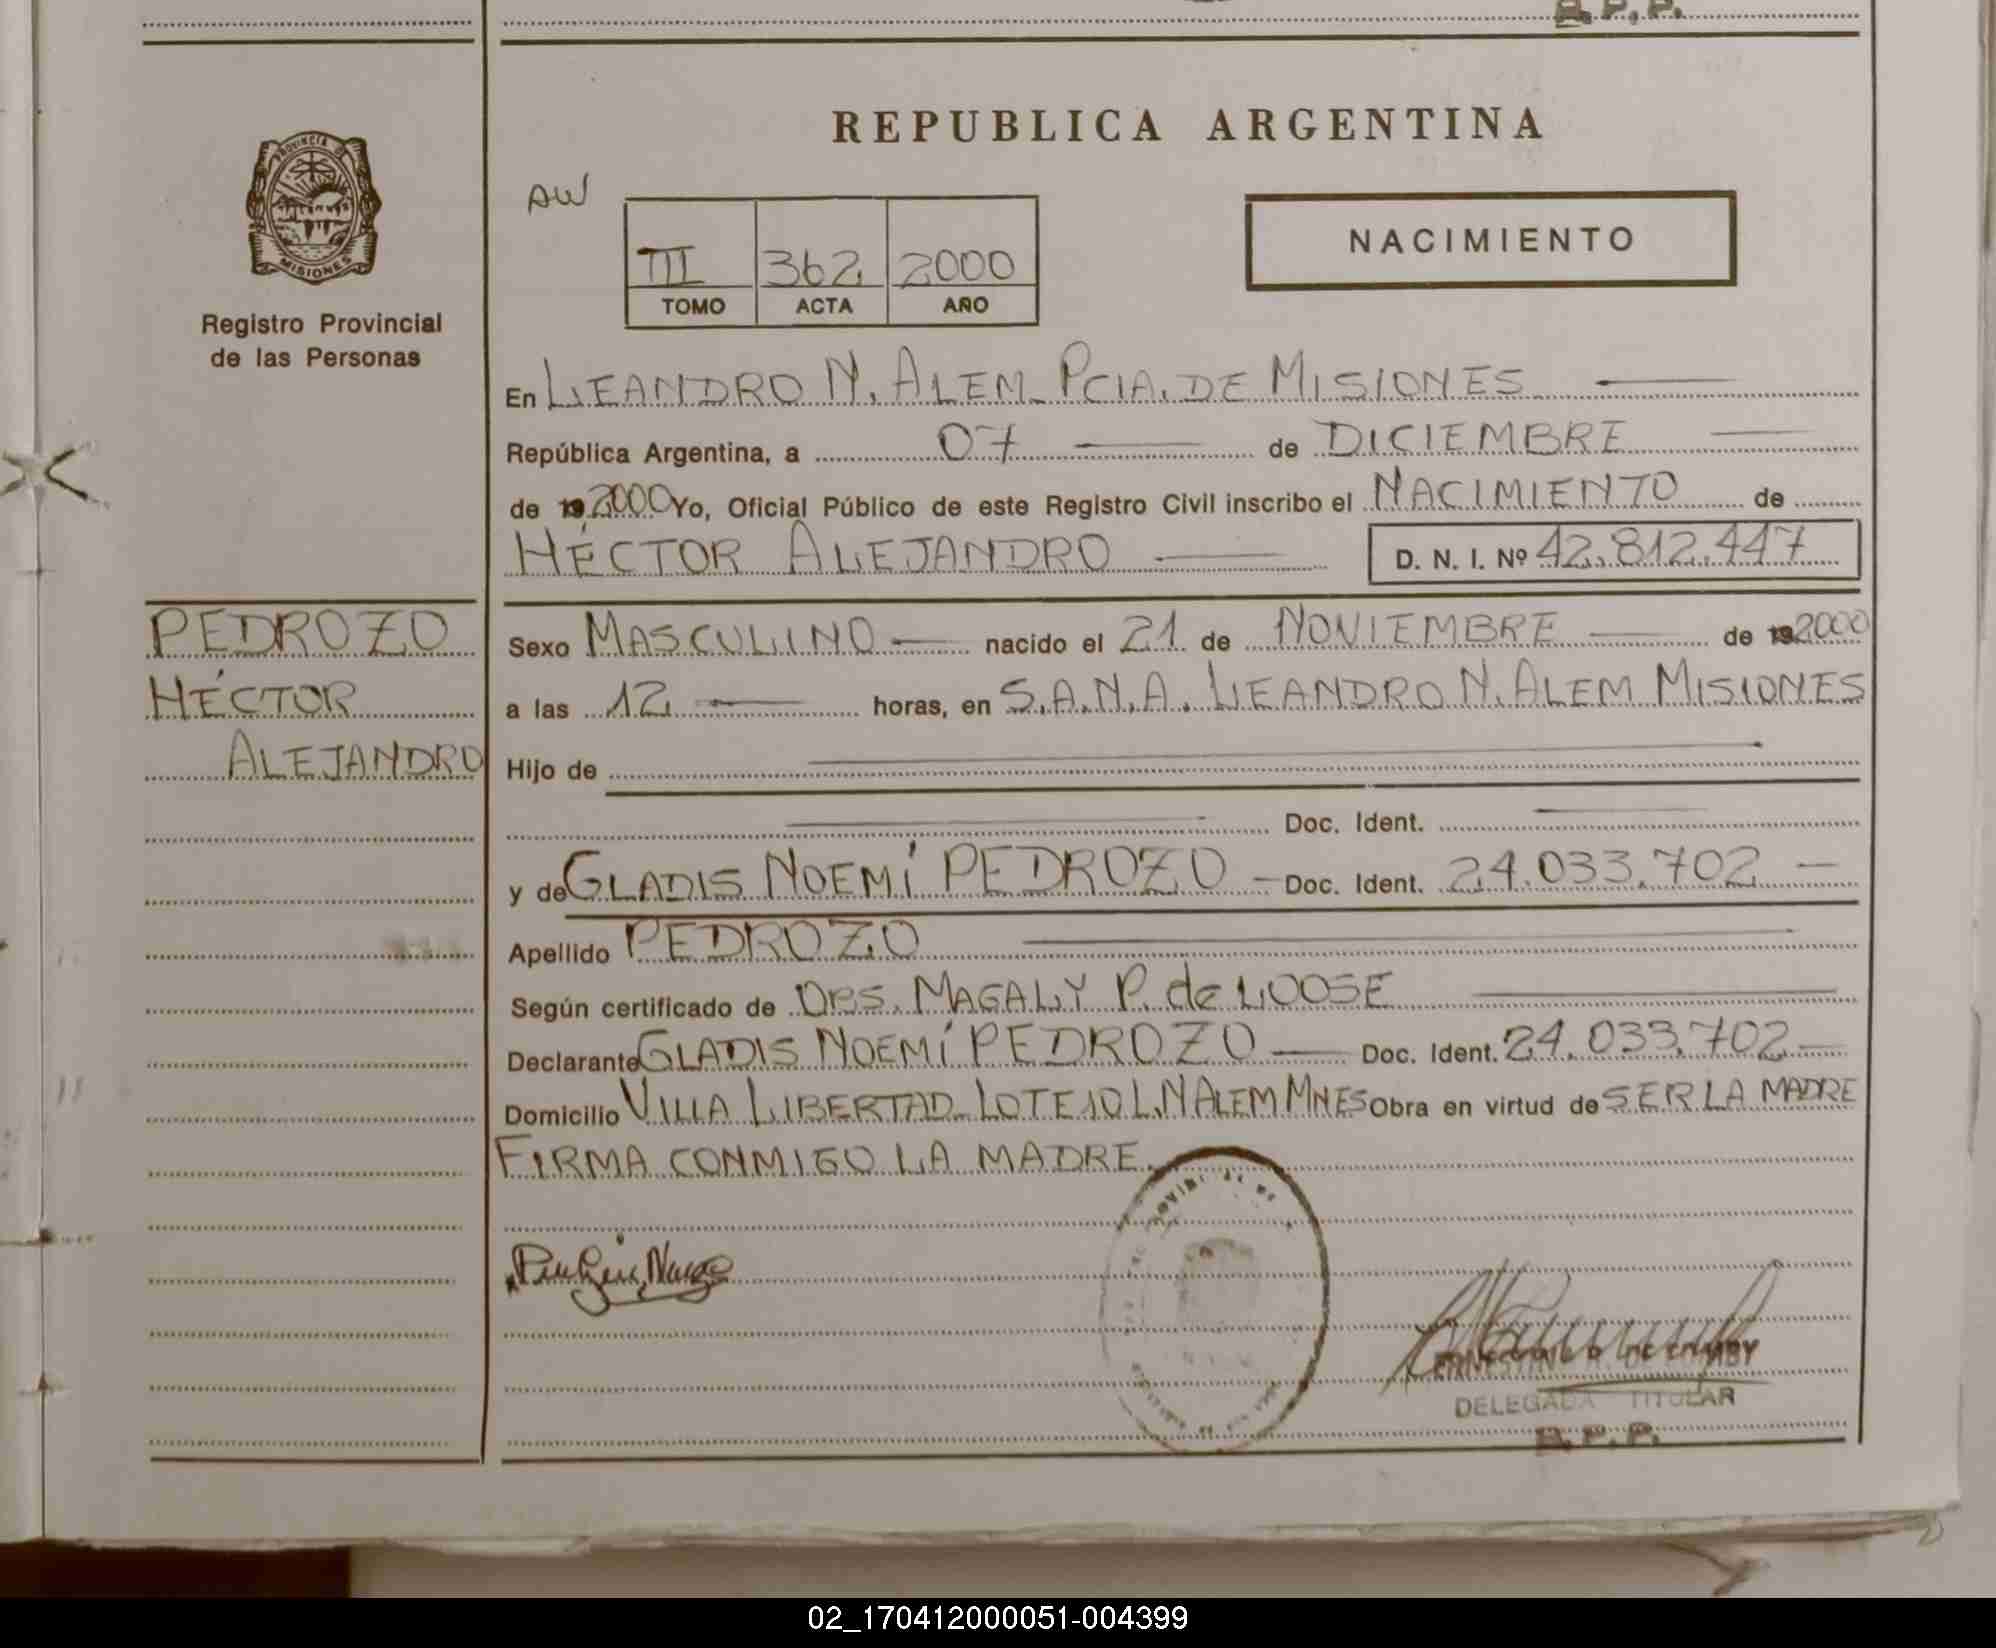 R.P.P.
PROVINCIA DE
MISIONES
Registro Provincial
de las Personas
PEDROZO
HÉCTOR
ALEJANDRO
REPUBLICA ARGENTINA
AW
III 362 2000
TOMO ACTA AÑO
NACIMIENTO
En LEANDRO N. ALEM PCIA. DE MISIONES
República Argentina, a 07 de DICIEMBRE
de 19 2000 Yo, Oficial Público de este Registro Civil inscribo el NACIMIENTO de
HÉCTOR ALEJANDRO D. N. I. Nº 42.812.447
Sexo MASCULINO nacido el 21 de NOVIEMBRE de 19 2000
a las 12 horas, en S.A.N.A. LEANDRO N. ALEM MISIONES
Hijo de
Doc. Ident.
y de GLADIS NOEMÍ PEDROZO Doc. Ident. 24.033.702
Apellido PEDROZO
Según certificado de OBS. MAGALY P. de LOOSE
Declarante GLADIS NOEMÍ PEDROZO Doc. Ident. 24.033.702
Domicilio VILLA LIBERTAD LOTE 10 L.N ALEM MNES Obra en virtud de SER LA MADRE
FIRMA CONMIGO LA MADRE.
DELEGADA TITULAR
R.P.P.
02_170412000051-004399